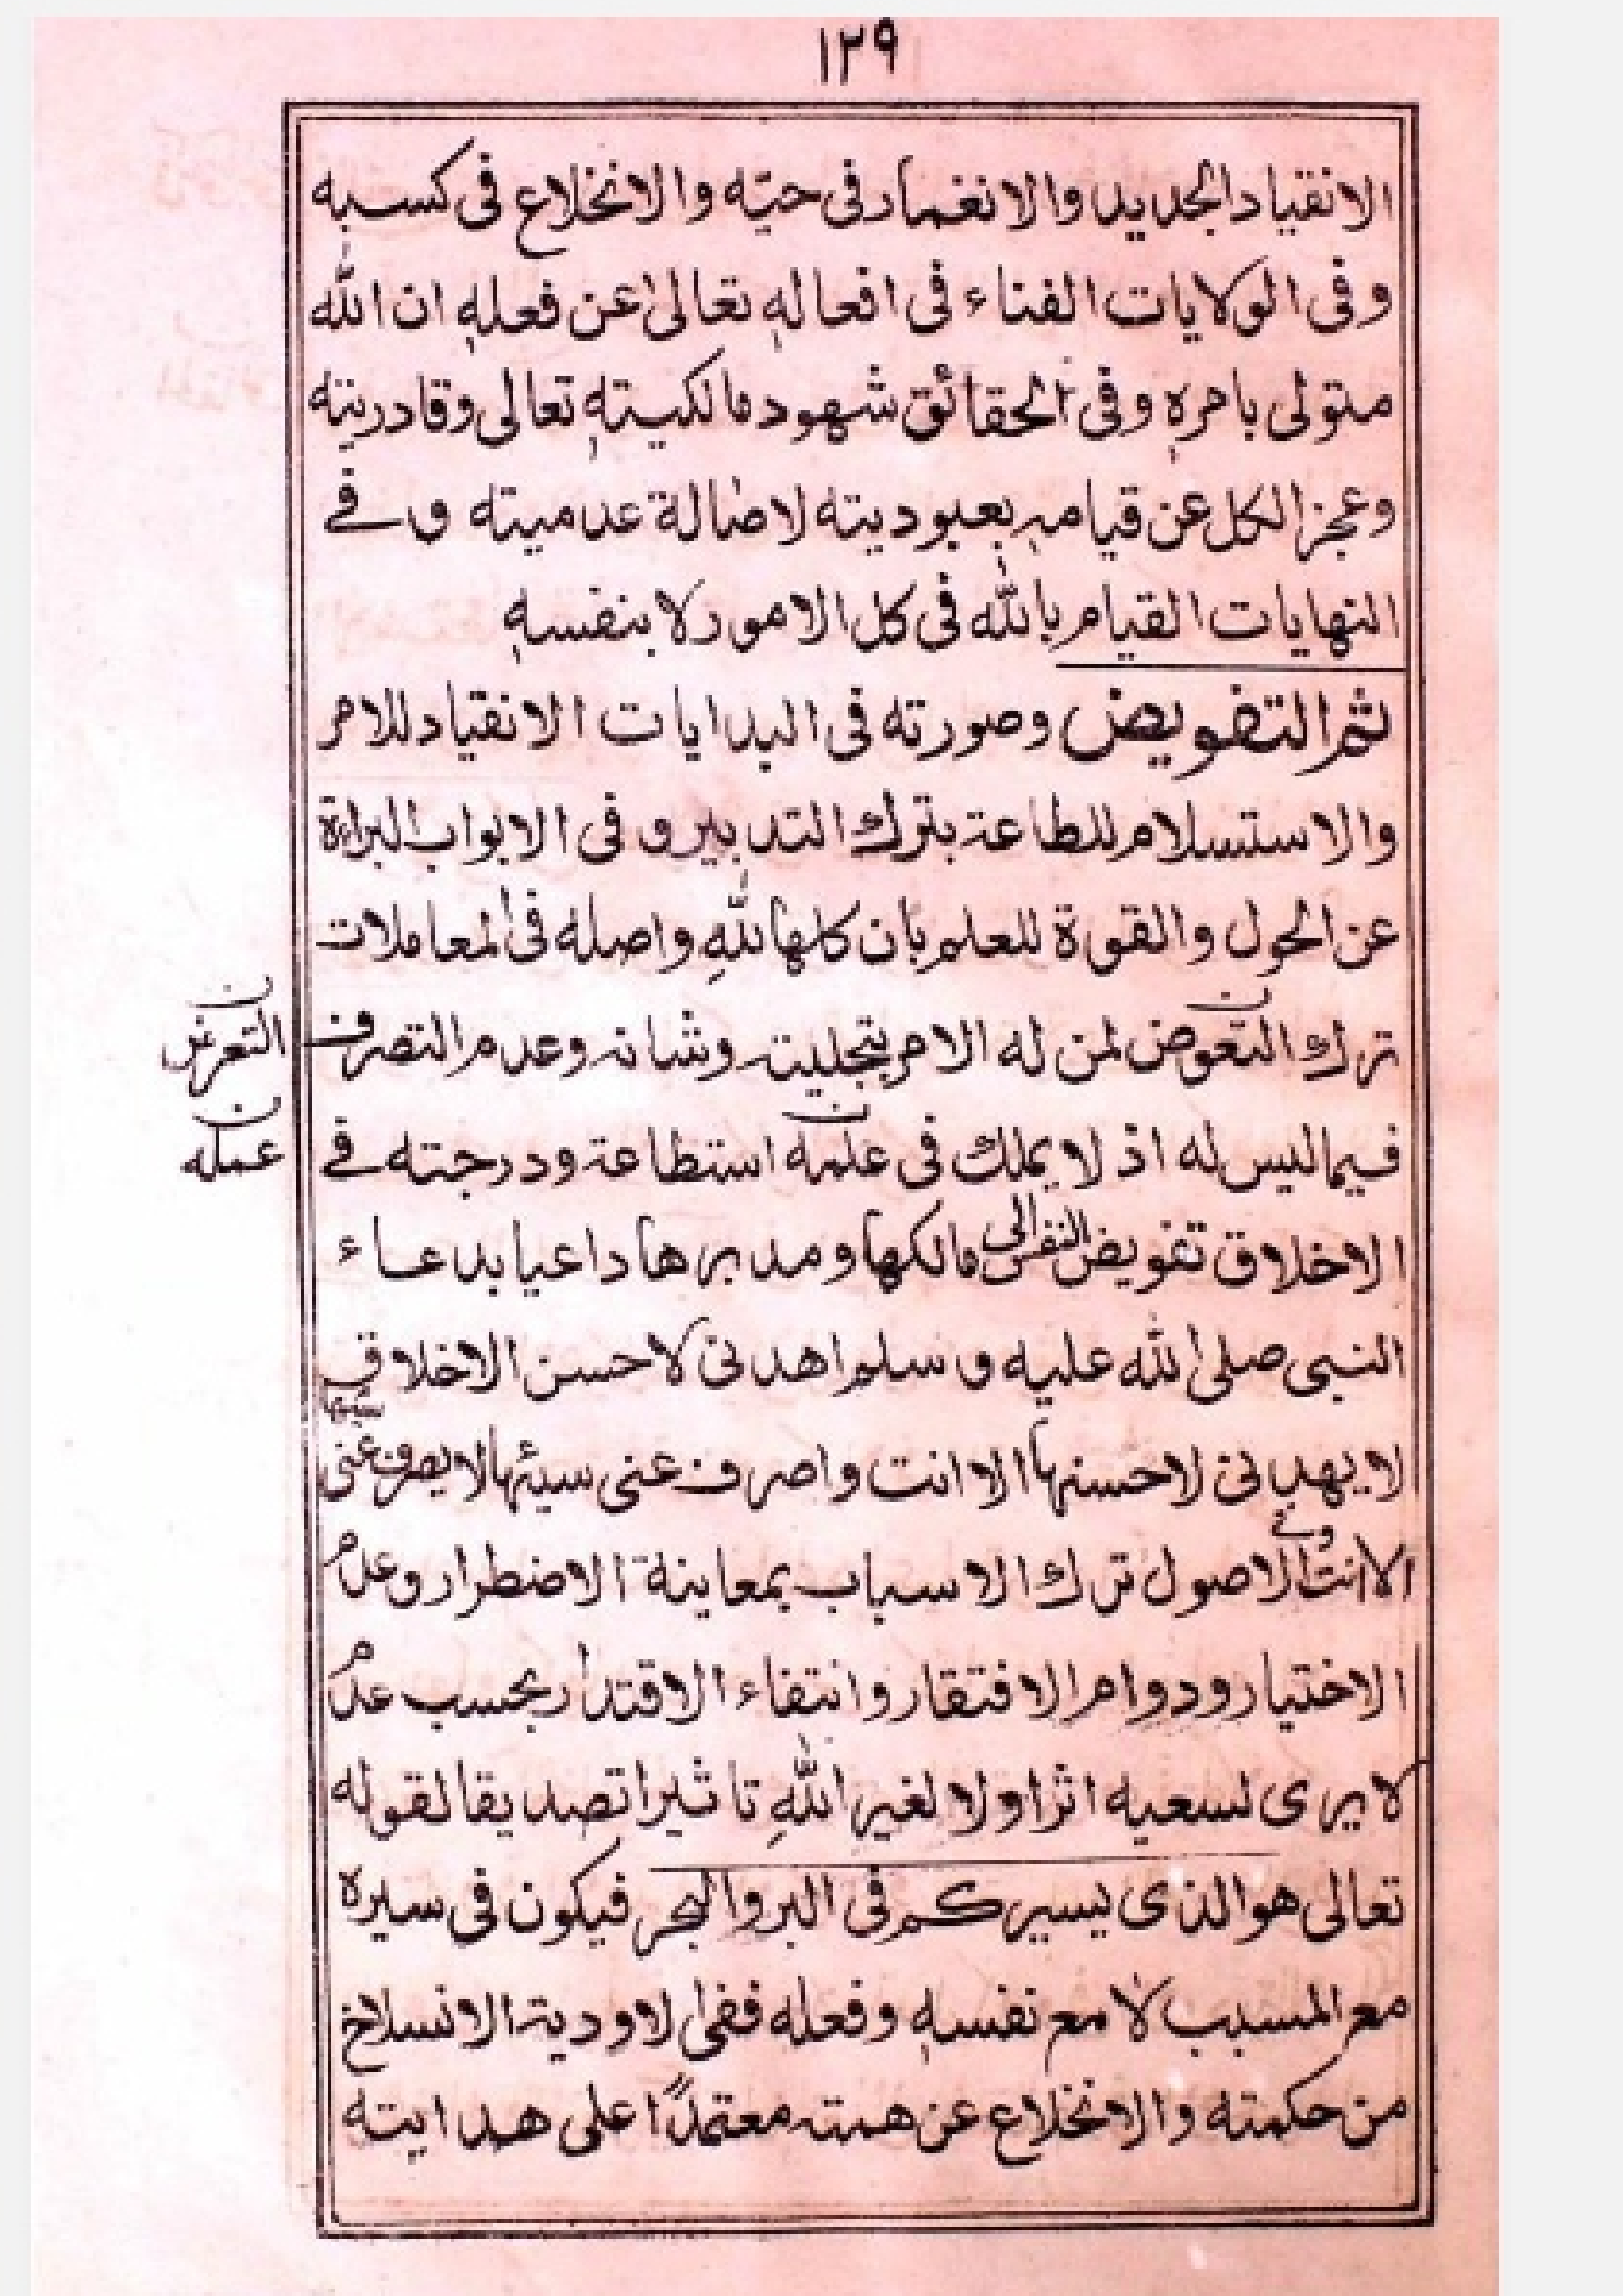 ١٢٩
الانقياد الجديد والانغمار فى حبّه والانخلاع فى كسبه
وفى الولايات الفناء فى افعاله تعالىٰ عن فعله ان الله
متولى بامره وفى الحقائق شهود مالكيته تعالى وقادريته
وعجز الكل عن قيامه بعبوديته لاصالة عدميته و فے
النهايات القيام بالله فى كل الامور لا بنفسه
ثم التفويض وصورته فى البدايات الانقياد للامر
والاستسلام للطاعة بترك التدبير و فى الابواب البراءة
عن الحول والقوة للعلم بأن كلها لله واصله فى المعاملات
ترك التعوض لمن له الامر بتجليته وشانه وعدم التصرف
ن
التعرض
فيما ليس له اذ لا يملك فى علمه استطاعة ودرجته فے
ن
عمله
الاخلاق تفويض النفس الى مالكها و مدبرها داعيا بدعاء
النبى صلى الله عليه و سلم اهدنى لاحسن الاخلاق
لا يهدنى لاحسنها الا انت واصرف عنى سيئها لا يصرف عنى سيئها
الا انت وفے الاصول ترك الاسباب بمعاينة الاضطرار وعدم
الاختيار ودوام الافتقار وانتفاء الاقتدار بحسب عدم
لا يرى لسعيه اثرا ولا لغير الله تاثيرا تصديقا لقوله
تعالى هو الذى يسيركم فى البر والبحر فيكون فى سيره
مع المسبب لا مع نفسه وفعله ففى الاودية الانسلاخ
من حكمته والانخلاع عن همته معتمدًا على هدايته